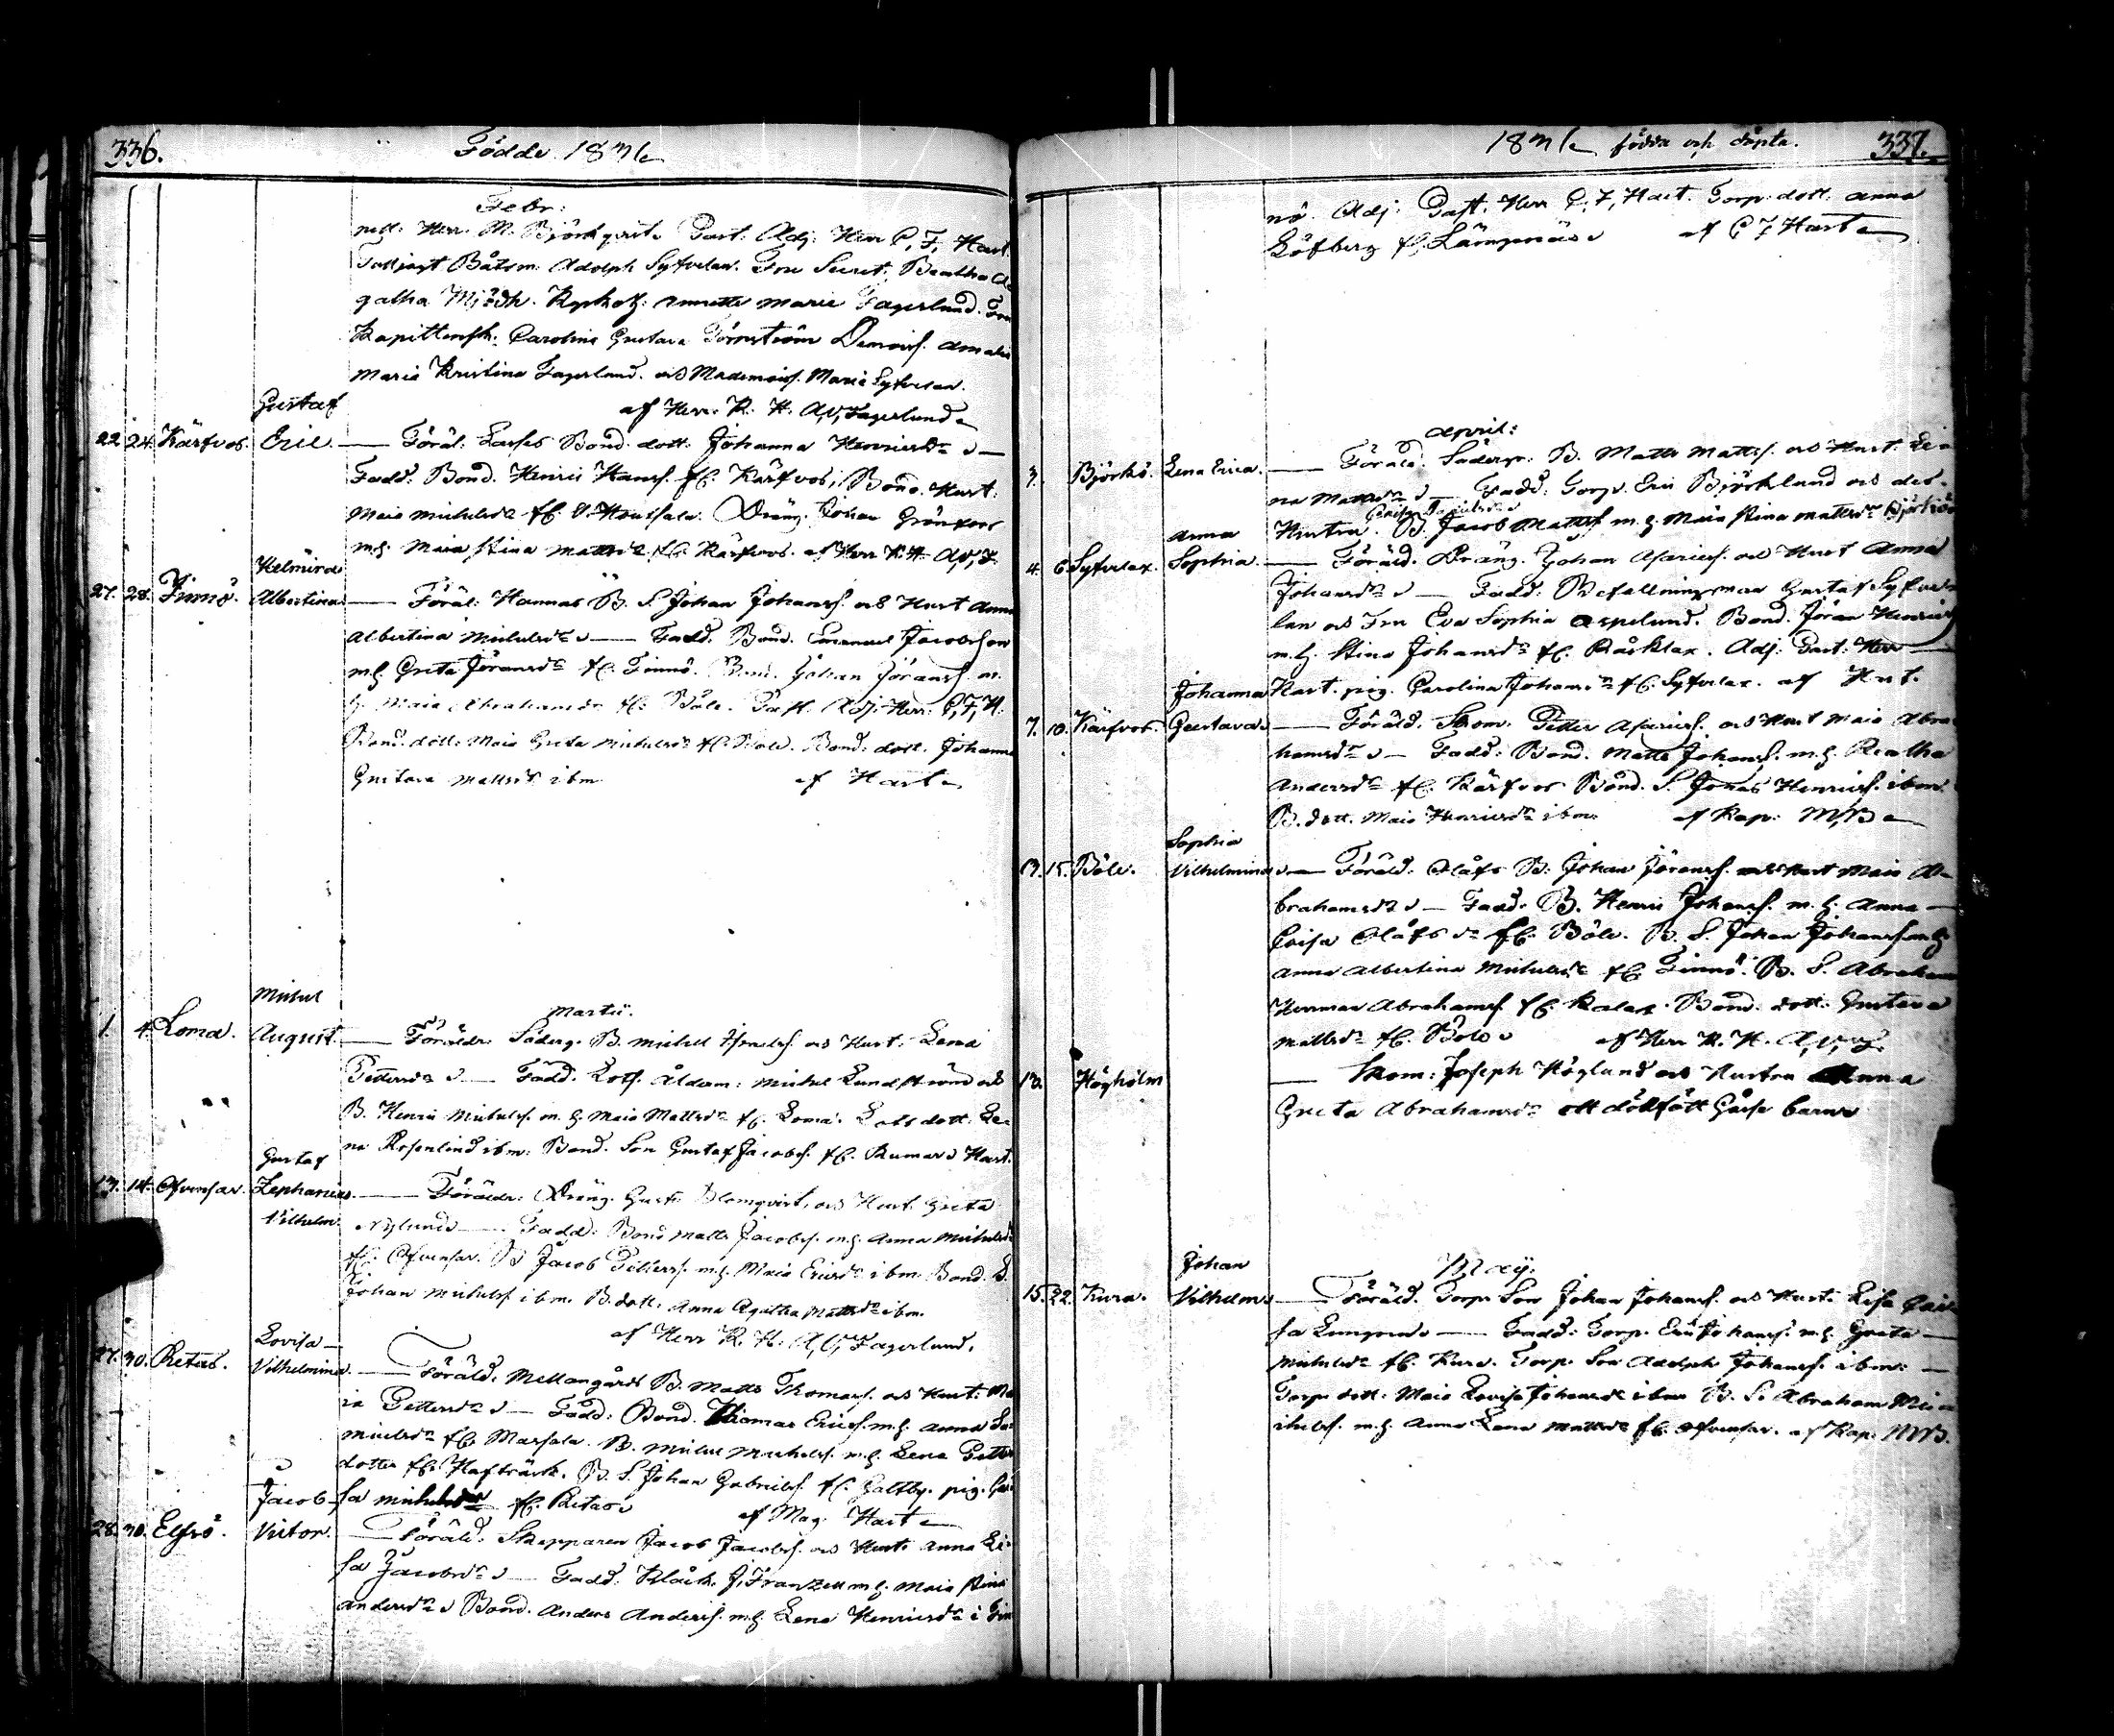 336.
Födde 1836
Febr:
nell. Herr. M. Björkqvist. Past. Adj: Herr P, F, Hart.
Tulljagt Båtsm. Adolph Sylvelan. Fru Secret. Beatha A
gatha Mjödh. Annette Maria Fagerlund. Fru
Kapittensk. Carolina Gustava Törnström Demois. Amalia
Maria Kristina Fagerlund. och Mademois. Maria Sylvelan.
af Herr. K. H. A, V, Fagerlund
Gustaf
22. 24. Kärfvos. Eric. — Föräl: Larses Bond. dott. Johanna Henricsdr —
Fadd. Bond. Henric Hanss. fr. Kärfvos, Bond. Hust.
Maia Michelsdr fr. Houtsala. Dräng. Johan Grönroos
m. h. Maia Stina Mattsdr fr. Kärfvos. af Herr K. H. A, V, F.
Helmina
27. 28. Finnö. Albertina — Föräl: Hannas B. S. Johan Johanss. och Hust Anna
Albertina Michelsdr — Fadd. Bond. Emanuel Jacobsson
m. h. Greta Jöransdr fr. Finnö. Bond. Johan Jöranss. m.
h. Maia Abrahamsdr fr. Böle. Past. Adj. Herr. P, F, H.
Bond. dott. Maia Greta Michelsdr fr. Böle. Bond. dott. Johanna
Gustava Mattsdr ibm af Hart
Martii.
Michel
1. 4. Loma. August. — Föräldr. Söderg. B. Michel och Hust. Lena
Pettersdr — Fadd. Lots. Åldam: Michel Lundström och
B. Henric Michelss. m. h. Maia Mattsdr fr. Loma. Lots dott. Le-
na Rosenlind ibm. Bond. Son Gustaf Jacobss. fr. Rumar. Hart.
Gustaf
13. 14. Ofvensar. Zephanias — Föräldr: Dräng. Gust. Blomqvist. och Hust. Greta
Vilhelm Nylund — Fadd: Bond Matts Jacobss. m. h. Anna Michelsdr
fr. Ofvensar. B. Jacob Petterss. m. h. Maia Ericsdr ibm. Bond. S.
Johan Michelss. ibm. B. dott. Anna Agatha Mattsdr ibm.
af Herr K. H. A, V, Fagerlund.
Lovisa
27. 30. Retais. Vilhelmina — Föräld. Mellangårds B. Matts Thomass. och Hust: Ma
ia Pettersdr — Fadd: Bond. Thomas Ericss. m. h. Anna
Michelsdr fr. Marsala. B. Michel Michelss. m. h. Lena Petters
dotter fr. Hafträsk. B. S. Johan Gabrielss. fr. Galtby. pig. Cai
sa Michelsdr fr. Retais af Mag. Hart
Jacob
28. 30. Elfsö. Victor. — Föräld. Skepparen Jacob Jacobss. och Hust. Anna Li-
sa Jacobsdr — Fadd: Klåck. J, Franzen m. h. Maia Stina
Andersdr Bond. Anders Anderss. m. h. Lena Henricsdr i Fin
1836 födda och döpta. 337.
nö. Adj: Past. Herr P, F, Hart. Torp. dott. Anna
Löfberg fr. Lämpnäs af P F Hart
April:
3. Björkö. Lena Erica. — Föräld. Söderg. B. Matts Mattss. och Hust. Le-
na Mattsdr — Fadd: Torp. Eric Björklund och dess
Hustru. B. Jacob Mattss m. h. Maia Stina Mattsdr Björkö
Anna
4. 6. Sylvelax. Sophia. — Föräld. Dräng. Johan Asariess. och Hust Anna
Johansdr — Fadd: Befallningsman Gustaf Sylve
lan och Fru Eva Sophia Aspelund. Bond. Jöran Henricss
m. h. Stina Johansdr fr. Råcklax. Adj: Past: Herr
Hart. pig. Carolina Johansdr fr. Sylvelax. af Hart.
Johanna
7. 10. Kärfvos. Gustava — Föräld. Skom. Petter Asariess. och Hust Maia Abra
hamsdr — Fadd: Bond. Matts Johanss. m. h. Beatha
Andersdr fr. Kärfvos Bond. S. Jonas Henricss. ibm.
B. dott. Maia Henricsdr ibm. af Kap: M, B
Sophia
13. 15. Böle. Vilhelmina — Föräld. Olofs B. Johan Jöranss. och Hust Maia A-
brahamsdr — Fadd. B. Henric Johanss. m. h. Anna
Caisa Olofsdr fr. Böle. B. S. Johan Johanss. m. h.
Anna Albertina Michelsdr fr. Finnö. B. S. Abraham
Herman Abrahamss. fr. Kalax. Bond. dott. Gustava
Mattsdr fr. Böle af Herr K. H. A, V, F.
13. Högholm — Skom: Joseph Höglund och Hustru Anna
Greta Abrahamsdr ett dödfött Gåsse barn
Maij.
Johan
15. 22. Kura. Vilhelm — Föräld. Torp. Son Johan Johanss. och Hust. Lisa Cai
sa — Fadd: Torp. Eric Johanss. m. h. Greta
Michelsdr fr. Kura. Torp. Son Adolph Johanss. ibm:
Torp. dott. Maia Lovisa Johansdr ibm B. S. Abraham Mi
chelss. m. h. Anna Lena Mattsdr fr. Ofvensar. af Kap. MB.